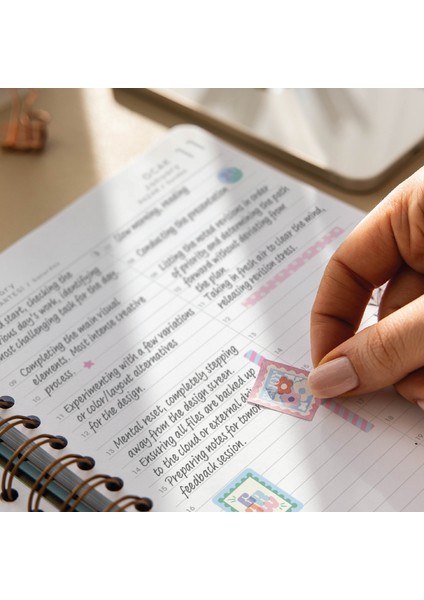 OCAK
11
Slow morning, reading
Conducting the presentation
Listing the noted revisions in order
of priority and determining the path
forward without deviating from
the plan.
Taking in fresh air to clear the mind,
releasing revision stress.
14
d start, checking the
ious day's work, identifying
most challenging task for the day.
09 Completing the main visual
elements. Most intense creative
10 process.
11 Experimenting with a few variations
or color/layout alternatives
12 for the design.
13 Mental reset, completely stepping
away from the design screen.
14 Ensuring all files are backed up
to the cloud or external
15 Preparing notes for
feedback session.
16